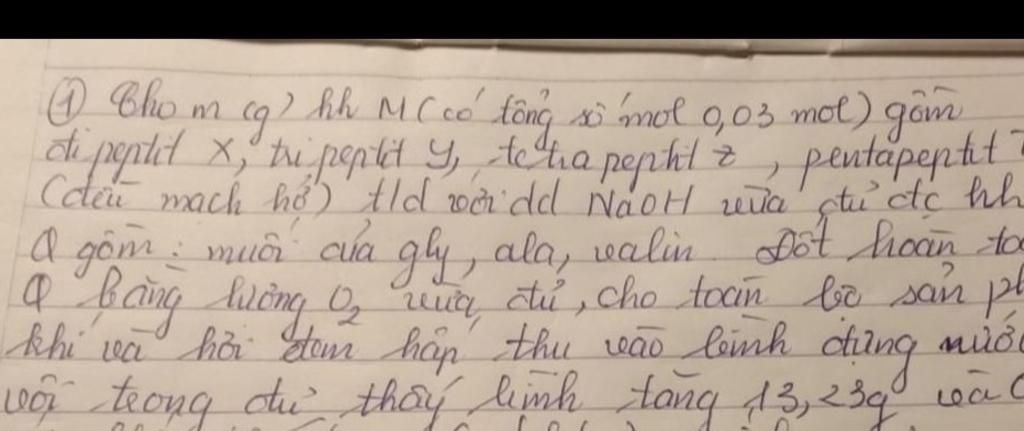 ① Cho m (g) hh M (có tổng số mol 0,03 mol) gồm
đi peptit X, tri peptit Y, tetra peptit Z, pentapeptit T
(đều mạch hở) t/d với dd NaOH vừa đủ đc hh
Q gồm: muối của gly, ala, valin. Đốt hoàn to
Q bằng lượng O₂ vừa đủ, cho toàn bộ sản ph
khí và hơi đem hấp thu vào bình đựng nước
vôi trong dư thấy bình tăng 13,23g và